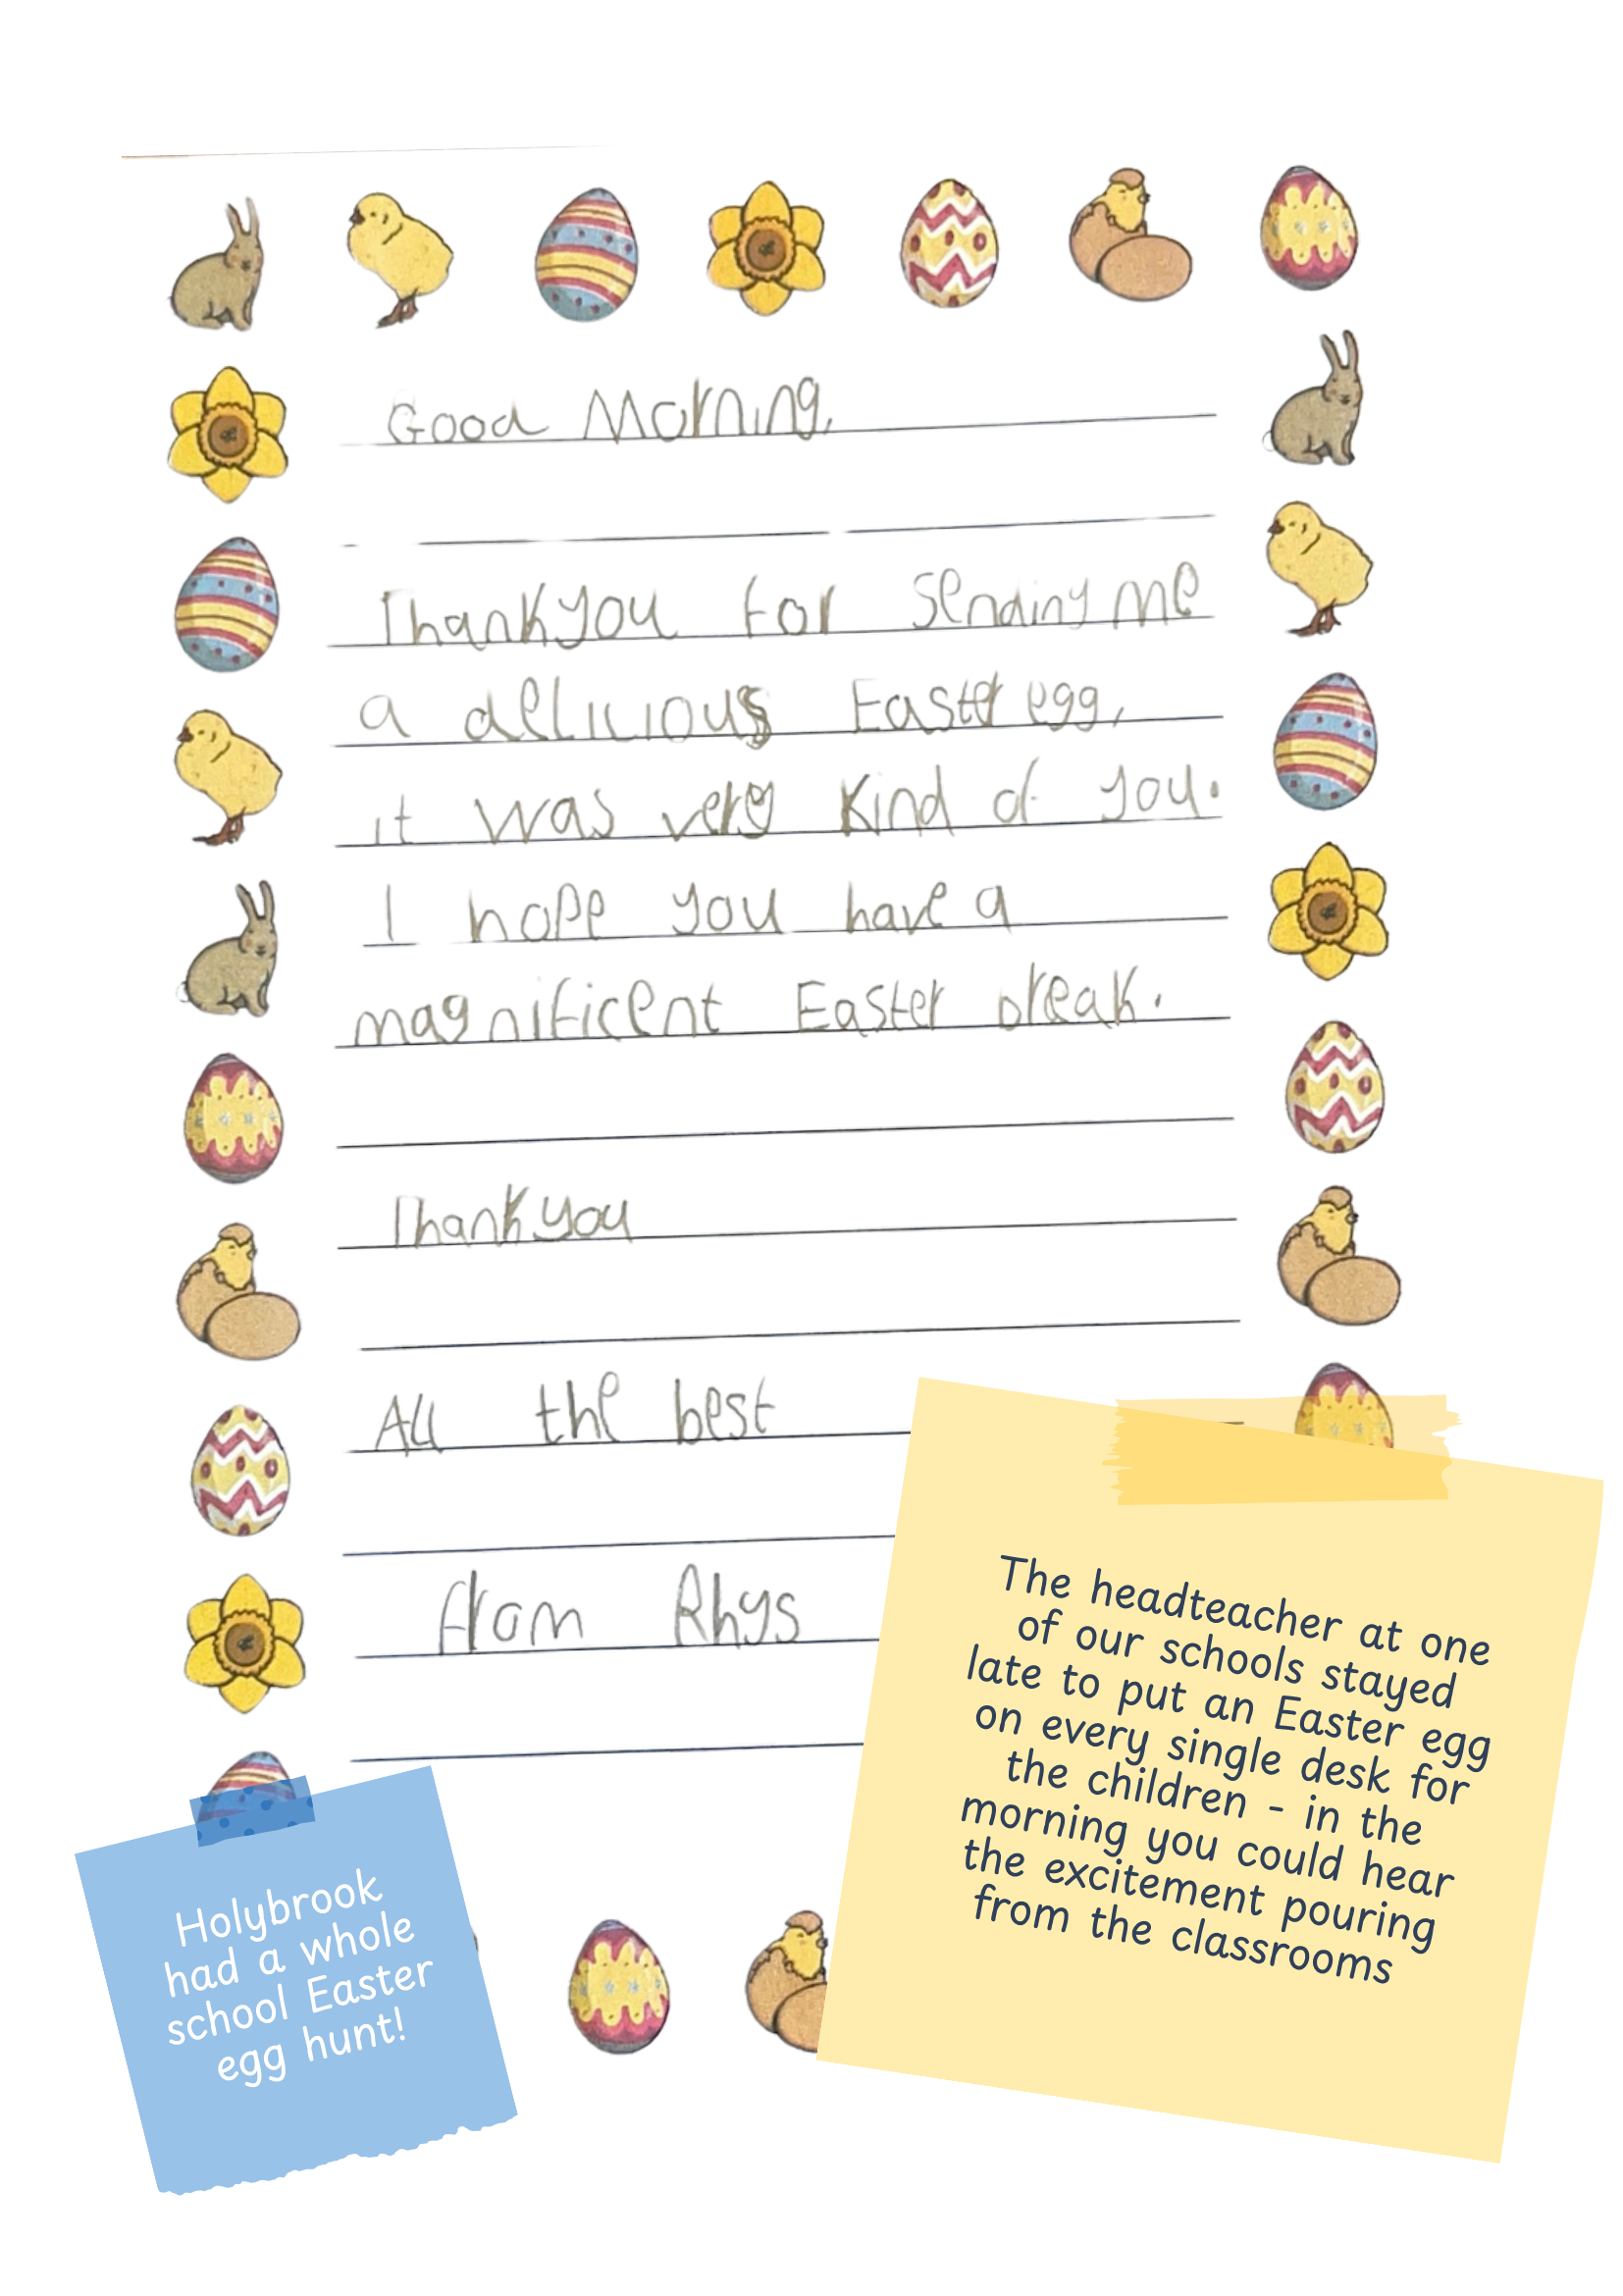 Good Morning,
Thankyou for sending me
a delicious Easter egg,
it was very kind of you.
I hope you have a
magnificent Easter break.
Thankyou
All the best
from Rhys
The headteacher at one
of our schools stayed
late to put an Easter egg
on every single desk for
the children - in the
morning you could hear
the excitement pouring
from the classrooms
Holybrook
had a whole
school Easter
egg hunt!